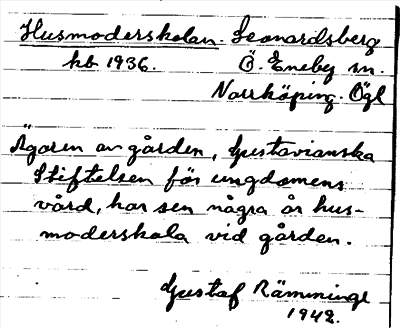 Husmoderskolan. Leonardsberg
hb 1936. Ö. Eneby sn.
Norrköping. Ögl
Ägaren av gården, Gustavianska
Stiftelsen för ungdomens
vård, har sen några år hus-
moderskola vid gården.
Gustaf Rämminge
1942.